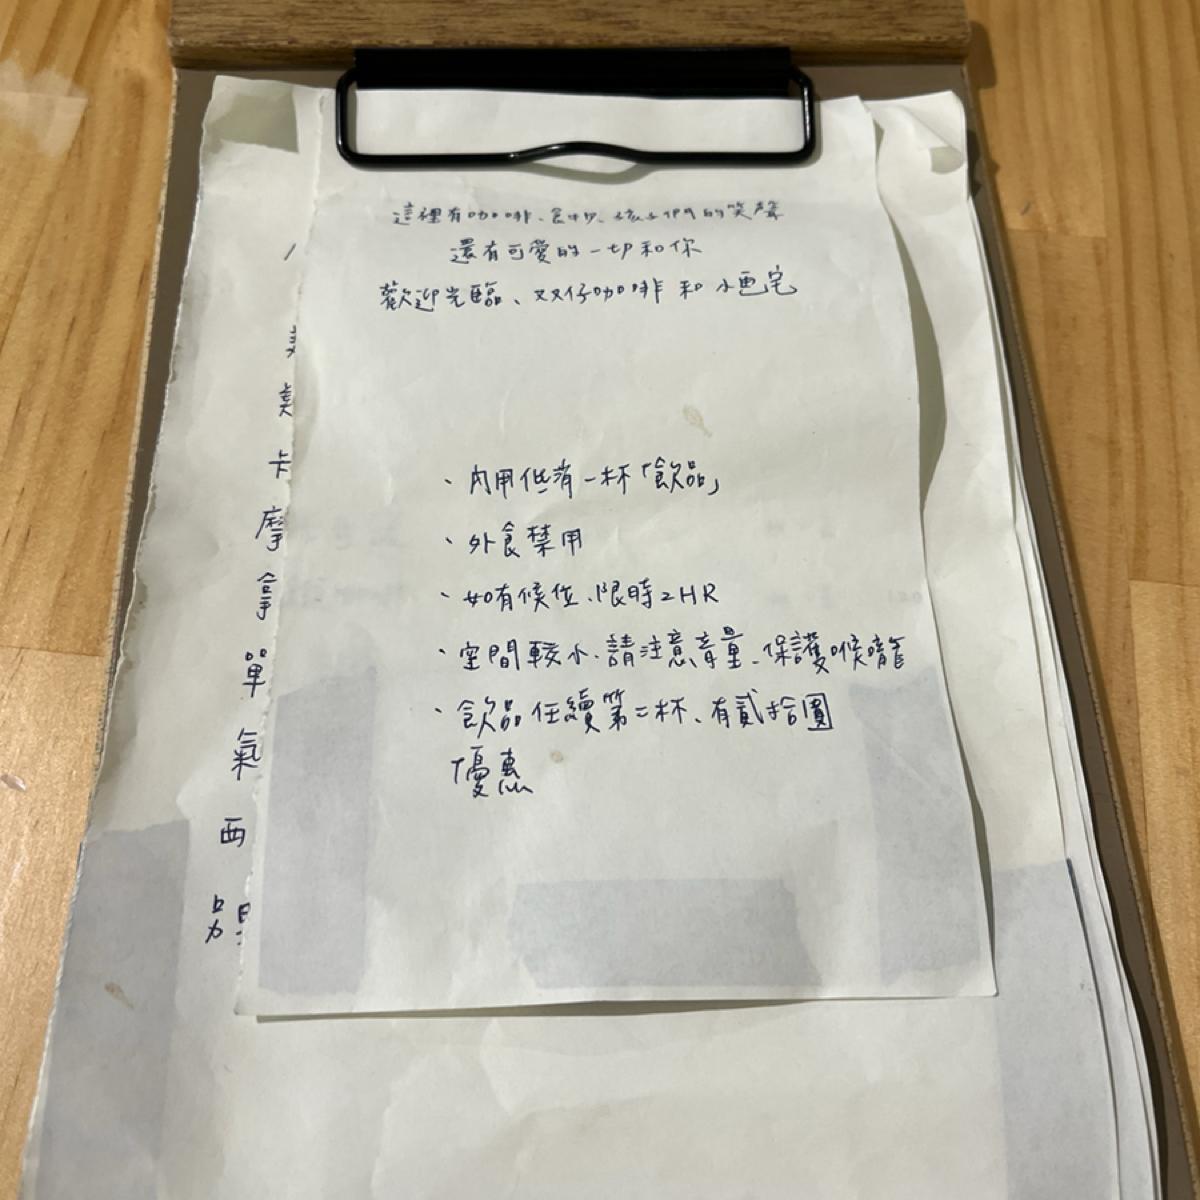 這裡有咖啡、食物、孩子們的笑聲
還有可愛的一切和你
歡迎光臨、双仔咖啡和小画宅
、內用低消一杯「飲品」
、外食禁用
、如有候位、限時2HR
、空間較小、請注意音量、保護喉嚨
、飲品任續第二杯、有貳拾圓
優惠
美
卡
摩
拿
單
氣
西